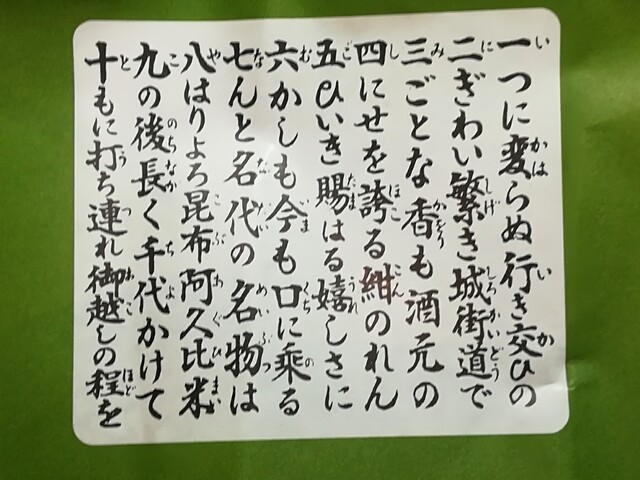 一つに変らぬ行き交ひの
二ぎわい繁き城街道で
三ごとな香も酒元の
四にせを誇る紺のれん
五ひいき賜はる嬉しさに
六かしも今も口に乗る
七んと名代の名物は
八はりよろ昆布阿久比米
九の後長く千代かけて
十もに打ち連れ御越しの程を